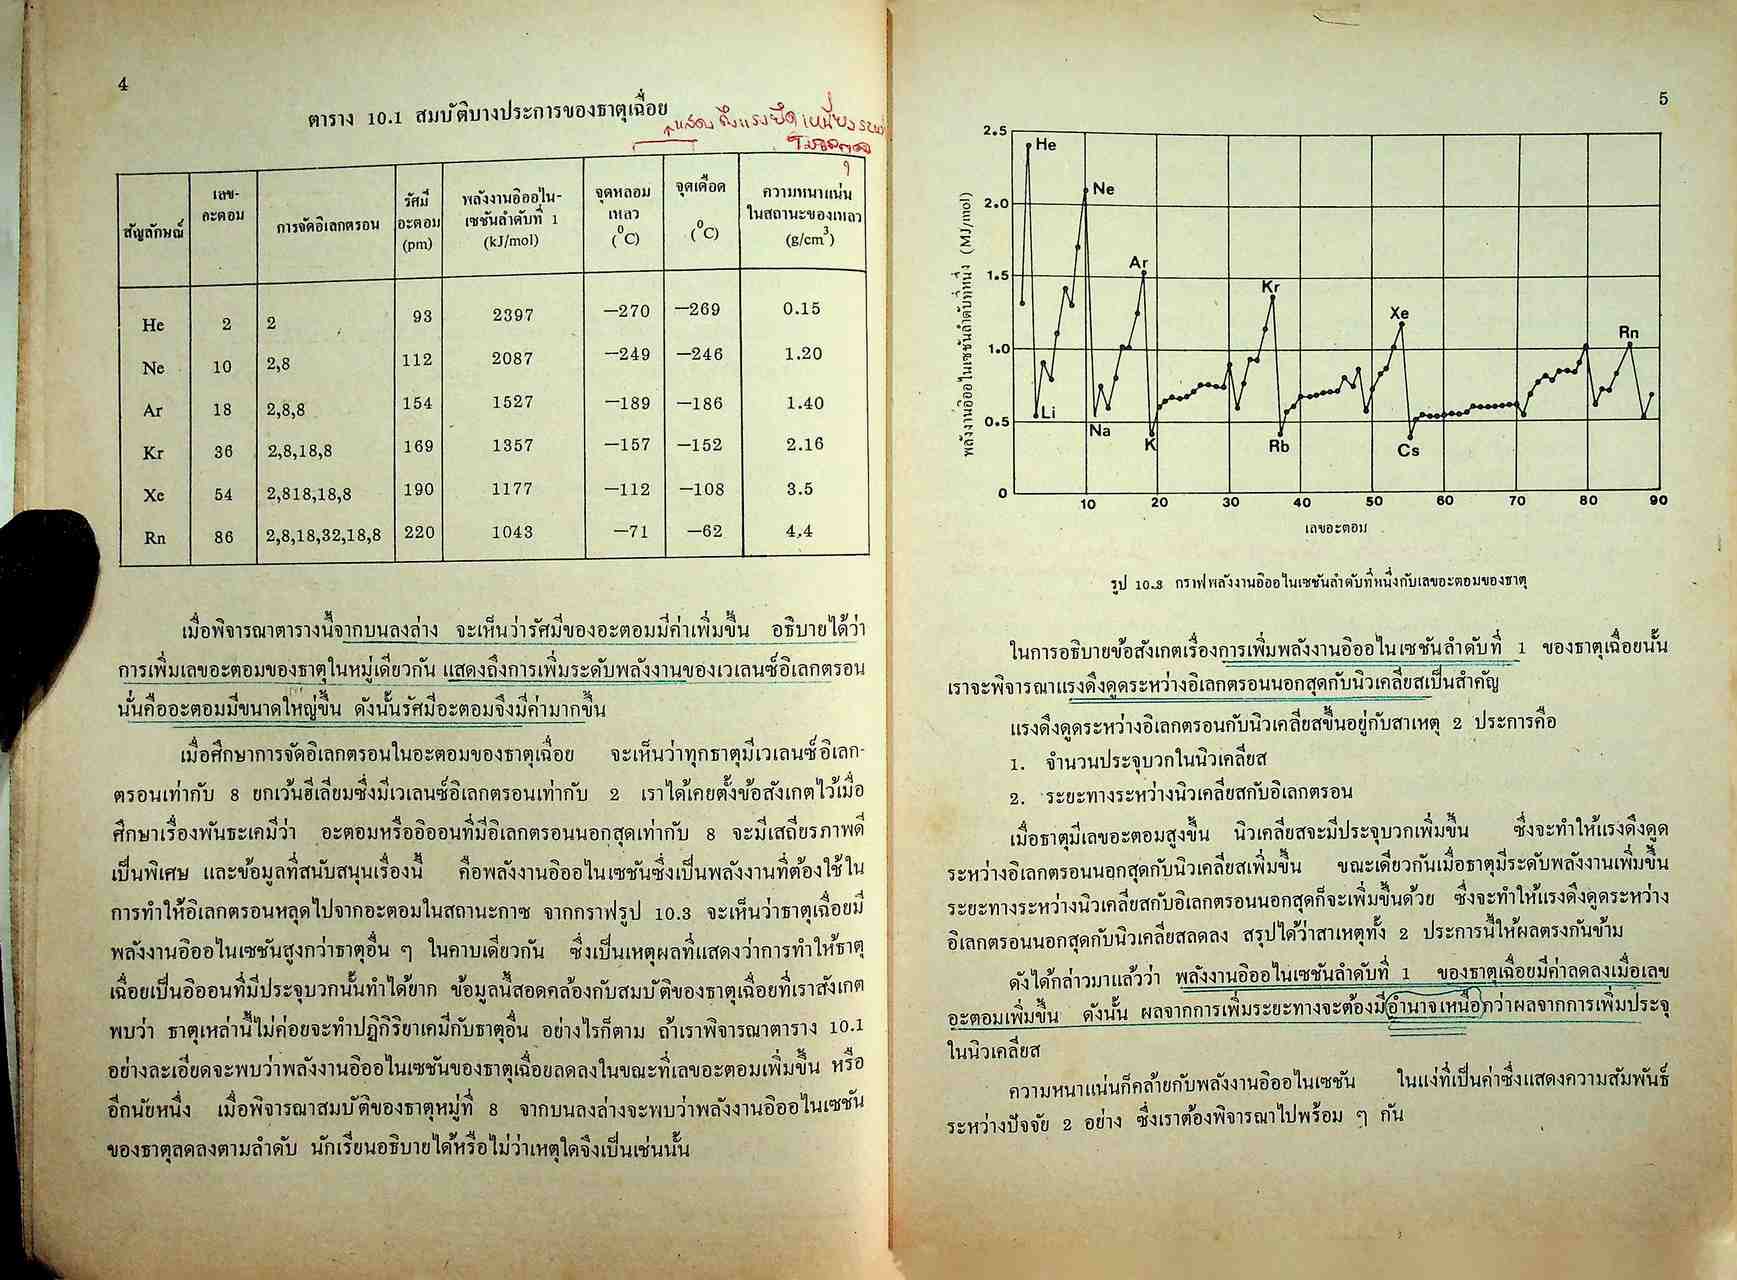 4
ตาราง 10.1 สมบัติบางประการของธาตุเฉื่อย
แสดงถึงแรงยึดเหนี่ยวระหว่าง
โมเลกุล
สัญลักษณ์ เลข-อะตอม การจัดอิเลกตรอน รัศมีอะตอม (pm) พลังงานอิออไน-เซชันลำดับที่ 1 (kJ/mol) จุดหลอมเหลว (⁰C) จุดเดือด (⁰C) ความหนาแน่นในสถานะของเหลว (g/cm³)
He 2 2 93 2397 —270 —269 0.15
Ne 10 2,8 112 2087 —249 —246 1.20
Ar 18 2,8,8 154 1527 —189 —186 1.40
Kr 36 2,8,18,8 169 1357 —157 —152 2.16
Xe 54 2,818,18,8 190 1177 —112 —108 3.5
Rn 86 2,8,18,32,18,8 220 1043 —71 —62 4.4
เมื่อพิจารณาตารางนี้จากบนลงล่าง จะเห็นว่ารัศมีของอะตอมมีค่าเพิ่มขึ้น อธิบายได้ว่า
การเพิ่มเลขอะตอมของธาตุในหมู่เดียวกัน แสดงถึงการเพิ่มระดับพลังงานของเวเลนซ์อิเลกตรอน
นั่นคืออะตอมมีขนาดใหญ่ขึ้น ดังนั้นรัศมีอะตอมจึงมีค่ามากขึ้น
เมื่อศึกษาการจัดอิเลกตรอนในอะตอมของธาตุเฉื่อย จะเห็นว่าทุกธาตุมีเวเลนซ์อิเลก-
ตรอนเท่ากับ 8 ยกเว้นฮีเลียมซึ่งมีเวเลนซ์อิเลกตรอนเท่ากับ 2 เราได้เคยตั้งข้อสังเกตไว้เมื่อ
ศึกษาเรื่องพันธะเคมีว่า อะตอมหรืออิออนที่มีอิเลกตรอนนอกสุดเท่ากับ 8 จะมีเสถียรภาพดี
เป็นพิเศษ และข้อมูลที่สนับสนุนเรื่องนี้ คือพลังงานอิออไนเซชันซึ่งเป็นพลังงานที่ต้องใช้ใน
การทำให้อิเลกตรอนหลุดไปจากอะตอมในสถานะกาซ จากกราฟรูป 10.3 จะเห็นว่าธาตุเฉื่อยมี
พลังงานอิออไนเซชันสูงกว่าธาตุอื่น ๆ ในคาบเดียวกัน ซึ่งเป็นเหตุผลที่แสดงว่าการทำให้ธาตุ
เฉื่อยเป็นอิออนที่มีประจุบวกนั้นทำได้ยาก ข้อมูลนี้สอดคล้องกับสมบัติของธาตุเฉื่อยที่เราสังเกต
พบว่า ธาตุเหล่านี้ไม่ค่อยจะทำปฏิกิริยาเคมีกับธาตุอื่น อย่างไรก็ตาม ถ้าเราพิจารณาตาราง 10.1
อย่างละเอียดจะพบว่าพลังงานอิออไนเซชันของธาตุเฉื่อยลดลงในขณะที่เลขอะตอมเพิ่มขึ้น หรือ
อีกนัยหนึ่ง เมื่อพิจารณาสมบัติของธาตุหมู่ที่ 8 จากบนลงล่างจะพบว่าพลังงานอิออไนเซชัน
ของธาตุลดลงตามลำดับ นักเรียนอธิบายได้หรือไม่ว่าเหตุใดจึงเป็นเช่นนั้น
5
พลังงานอิออไนเซชันลำดับที่หนึ่ง (MJ/mol)
2.5
2.0
1.5
1.0
0.5
0
He
Ne
Ar
Kr
Xe
Rn
Li
Na
K
Rb
Cs
10 20 30 40 50 60 70 80 90
เลขอะตอม
รูป 10.3 กราฟพลังงานอิออไนเซชันลำดับที่หนึ่งกับเลขอะตอมของธาตุ
ในการอธิบายข้อสังเกตเรื่องการเพิ่มพลังงานอิออไนเซชันลำดับที่ 1 ของธาตุเฉื่อยนั้น
เราจะพิจารณาแรงดึงดูดระหว่างอิเลกตรอนนอกสุดกับนิวเคลียสเป็นสำคัญ
แรงดึงดูดระหว่างอิเลกตรอนกับนิวเคลียสขึ้นอยู่กับสาเหตุ 2 ประการคือ
1. จำนวนประจุบวกในนิวเคลียส
2. ระยะทางระหว่างนิวเคลียสกับอิเลกตรอน
เมื่อธาตุมีเลขอะตอมสูงขึ้น นิวเคลียสจะมีประจุบวกเพิ่มขึ้น ซึ่งจะทำให้แรงดึงดูด
ระหว่างอิเลกตรอนนอกสุดกับนิวเคลียสเพิ่มขึ้น ขณะเดียวกันเมื่อธาตุมีระดับพลังงานเพิ่มขึ้น
ระยะทางระหว่างนิวเคลียสกับอิเลกตรอนนอกสุดก็จะเพิ่มขึ้นด้วย ซึ่งจะทำให้แรงดึงดูดระหว่าง
อิเลกตรอนนอกสุดกับนิวเคลียสลดลง สรุปได้ว่าสาเหตุทั้ง 2 ประการนี้ให้ผลตรงกันข้าม
ดังได้กล่าวมาแล้วว่า พลังงานอิออไนเซชันลำดับที่ 1 ของธาตุเฉื่อยมีค่าลดลงเมื่อเลข
อะตอมเพิ่มขึ้น ดังนั้น ผลจากการเพิ่มระยะทางจะต้องมีอำนาจเหนือกว่าผลจากการเพิ่มประจุ
ในนิวเคลียส
ความหนาแน่นก็คล้ายกับพลังงานอิออไนเซชัน ในแง่ที่เป็นค่าซึ่งแสดงความสัมพันธ์
ระหว่างปัจจัย 2 อย่าง ซึ่งเราต้องพิจารณาไปพร้อม ๆ กัน